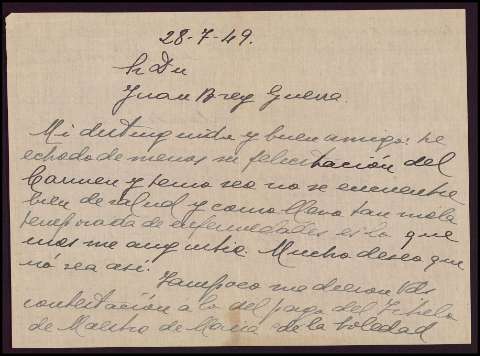 28-7-49.
Sr Dn
Juan Brey Guerra.
Mi distinguido y buen amigo: he
echado de menos su felicitación del
Carmen y temo sea no se encuentre
bien de salud y como llevo tan mala
temporada de enfermedades es lo que
mas me angustia. Mucho deseo que
nó sea asi.
Tampoco me dieron Vds
contestación a la del pago del Titulo
de Maestra de Maria de la Soledad